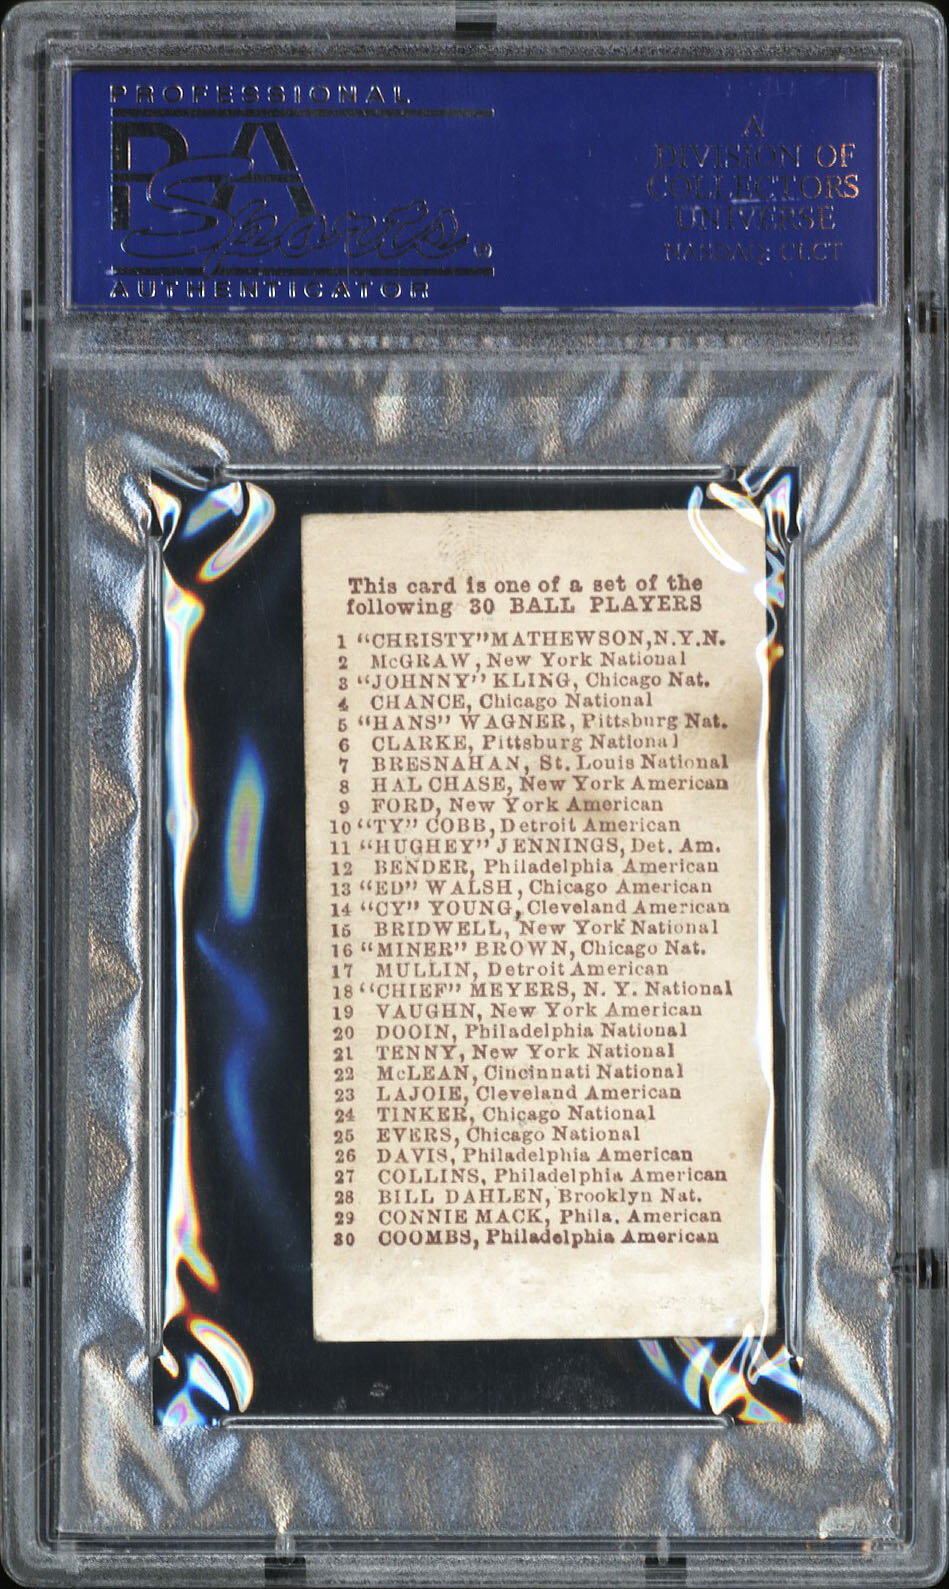 PROFESSIONAL
PSA
Sports®
AUTHENTICATOR
A
DIVISION OF
COLLECTORS
UNIVERSE
NASDAQ: CLCT
This card is one of a set of the
following 30 BALL PLAYERS
1 "CHRISTY" MATHEWSON, N.Y.N.
2 McGRAW, New York National
3 "JOHNNY" KLING, Chicago Nat.
4 CHANCE, Chicago National
5 "HANS" WAGNER, Pittsburg Nat.
6 CLARKE, Pittsburg National
7 BRESNAHAN, St. Louis National
8 HAL CHASE, New York American
9 FORD, New York American
10 "TY" COBB, Detroit American
11 "HUGHEY" JENNINGS, Det. Am.
12 BENDER, Philadelphia American
13 "ED" WALSH, Chicago American
14 "CY" YOUNG, Cleveland American
15 BRIDWELL, New York National
16 "MINER" BROWN, Chicago Nat.
17 MULLIN, Detroit American
18 "CHIEF" MEYERS, N. Y. National
19 VAUGHN, New York American
20 DOOIN, Philadelphia National
21 TENNY, New York National
22 McLEAN, Cincinnati National
23 LAJOIE, Cleveland American
24 TINKER, Chicago National
25 EVERS, Chicago National
26 DAVIS, Philadelphia American
27 COLLINS, Philadelphia American
28 BILL DAHLEN, Brooklyn Nat.
29 CONNIE MACK, Phila. American
30 COOMBS, Philadelphia American